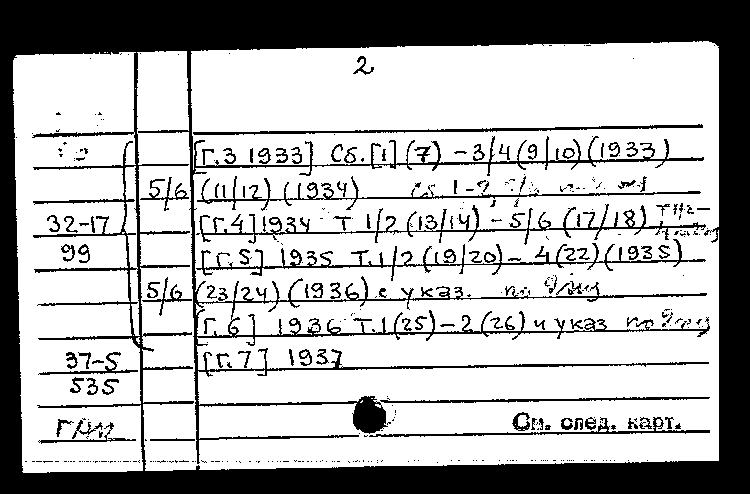 2
[Г.3 1933] Сб.[1](7) – 3/4(9/10)(1933)
5/6 (11/12) (1934) сб. 1-2,
32-17 [Г.4] 1934 Т 1/2 (13/14) – 5/6 (17/18)
99 [Г.5] 1935 Т.1/2 (19/20) – 4(22)(1935)
5/6 (23/24) (1936) с указ. по
[Г.6] 1936 Т.1(25) – 2(26) и указ по
37-5 [Г.7] 1937
535
ГДМ См. след. карт.